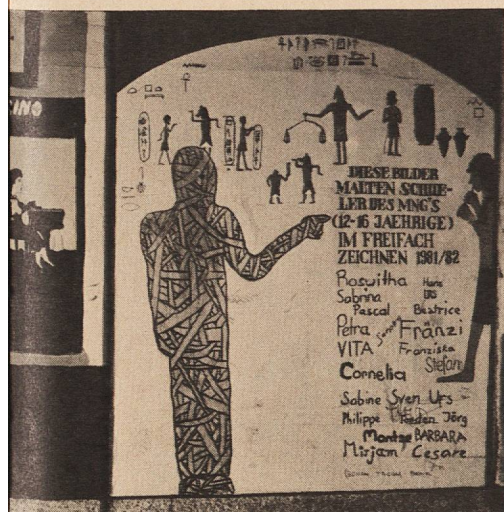 DIESE BILDER
MALTEN SCHUE-
LER DES MNG'S
(12-16 JAEHRIGE)
IM FREIFACH
ZEICHNEN 1981/82
Roswitha
Sabrina
Pascal Béatrice
Petra Fränzi
VITA Franziska
Cornelia Stefan
Sabine Sven Urs
Philippe Jörg
BARBARA
Mirjam Cesare